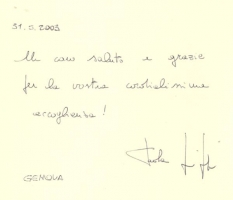 31.5.2003
Un caro saluto e grazie
per la vostra cordialissima
accoglienza!
GENOVA